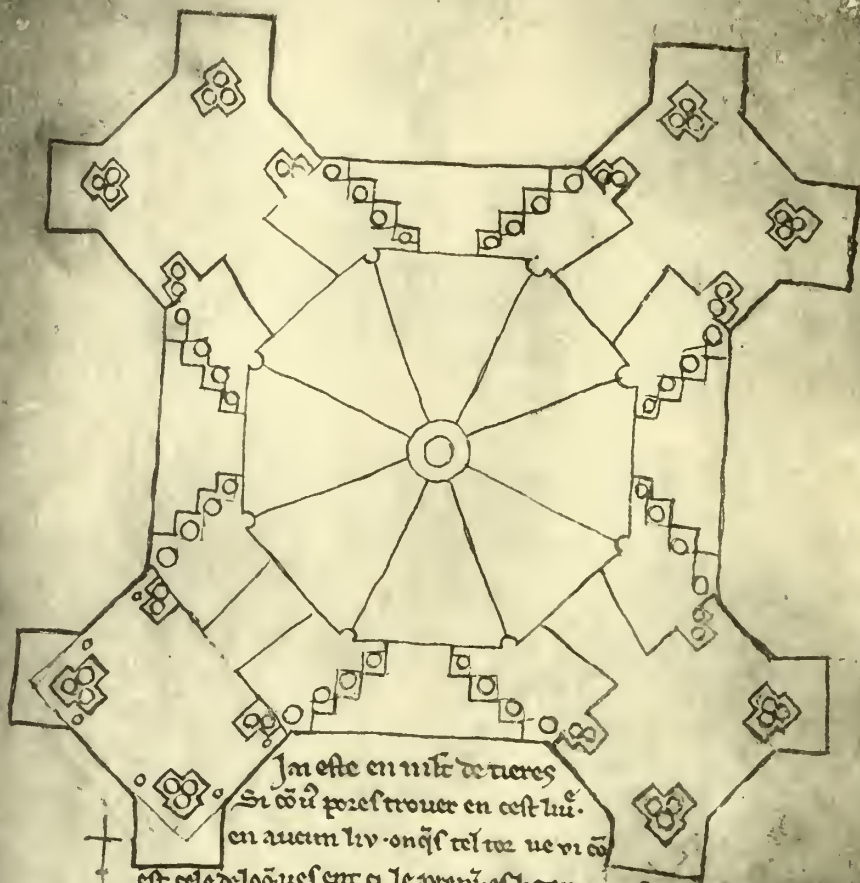 Jai este en mlt̄ de tieres
Si cōu᷒ pores trouer en cest liu᷒.
en aucun liv · onq̄s tel tor ne vi cō
est cele de loō ves ent ci le